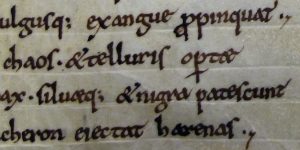 ulgusq; exangue ꝓpinquat.,
chaos. &telluris oꝑtæ
ax. siluæq; &nigra patescunt
cheron eiectat harenas.,